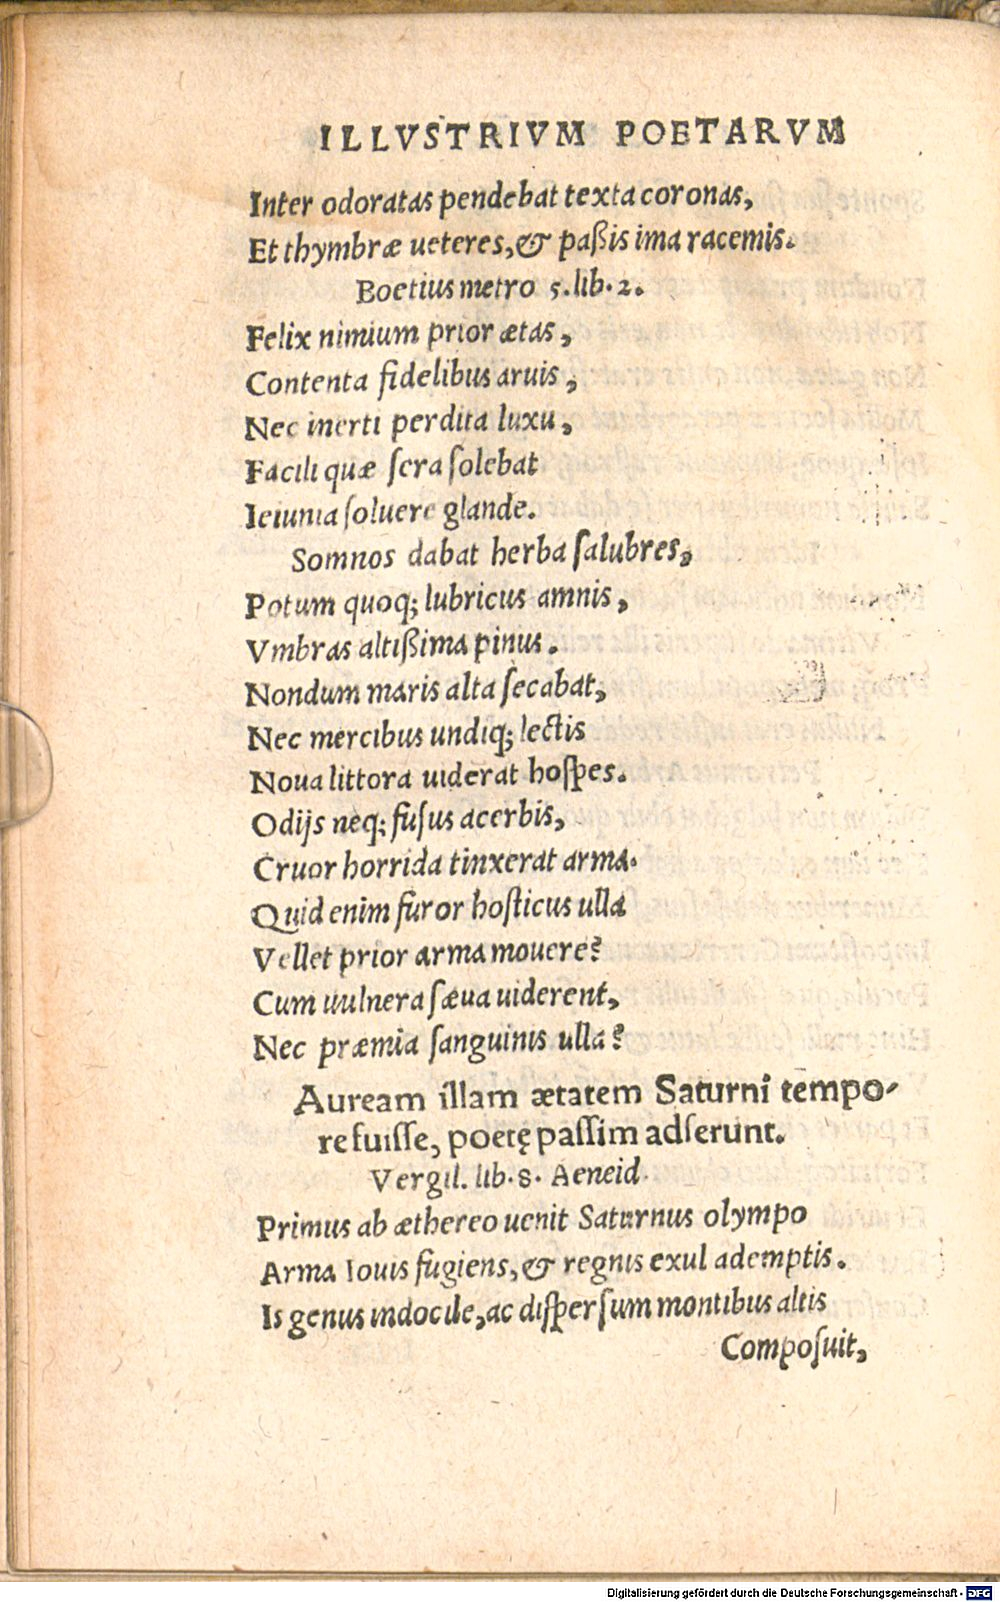 ILLVSTRIVM POETARVM
Inter odoratas pendebat texta coronas,
Et thymbræ ueteres, & paßis ima racemis.
Boetius metro 5. lib. 2.
Felix nimium prior ætas,
Contenta fidelibus aruis,
Nec inerti perdita luxu,
Facili quæ sera solebat
Ieiunia soluere glande.
Somnos dabat herba salubres,
Potum quoq; lubricus amnis,
Vmbras altißima pinus.
Nondum maris alta secabat,
Nec mercibus undiq; lectis
Noua littora uiderat hospes.
Odijs neq; fusus acerbis,
Cruor horrida tinxerat arma.
Quid enim furor hosticus ulla
Vellet prior arma mouere?
Cum uulnera sæua uiderent,
Nec præmia sanguinis ulla?
Auream illam ætatem Saturni tempo-
re fuisse, poetę passim adserunt.
Vergil. lib. 8. Aeneid.
Primus ab æthereo uenit Saturnus olympo
Arma Iouis fugiens, & regnis exul ademptis.
Is genus indocile, ac dispersum montibus altis
Composuit,
Digitalisierung gefördert durch die Deutsche Forschungsgemeinschaft - DFG